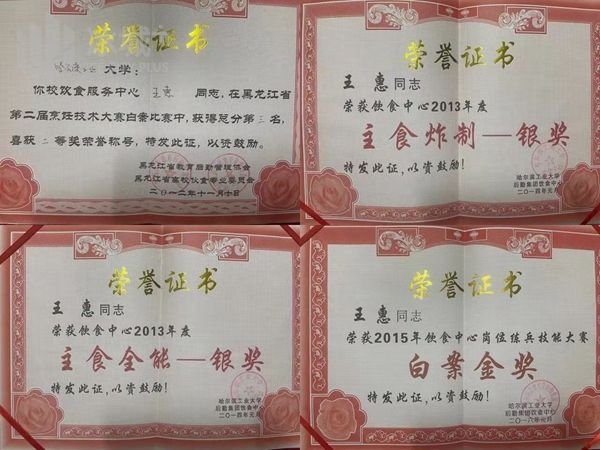 荣誉证书
哈尔滨工业大学：
你校饮食服务中心 王惠 同志，在黑龙江省
第二届烹饪技术大赛白案比赛中，获得总分第三名，
喜获二等奖荣誉称号，特发此证，以资鼓励。
黑龙江省教育后勤管理协会
黑龙江省高校伙食专业委员会
二〇一二年十一月十日
PLUS
荣誉证书
王惠同志
荣获饮食中心2013年度
主食炸制—银奖
特发此证，以资鼓励！
哈尔滨工业大学
后勤集团饮食中心
二〇一四年元月
荣誉证书
王惠同志
荣获饮食中心2013年度
主食全能—银奖
特发此证，以资鼓励！
哈尔滨工业大学
后勤集团饮食中心
二〇一四年元月
荣誉证书
王惠同志
荣获2015年饮食中心岗位练兵技能大赛
白案金奖
特发此证，以资鼓励！
哈尔滨工业大学
后勤集团饮食中心
二〇一六年元月